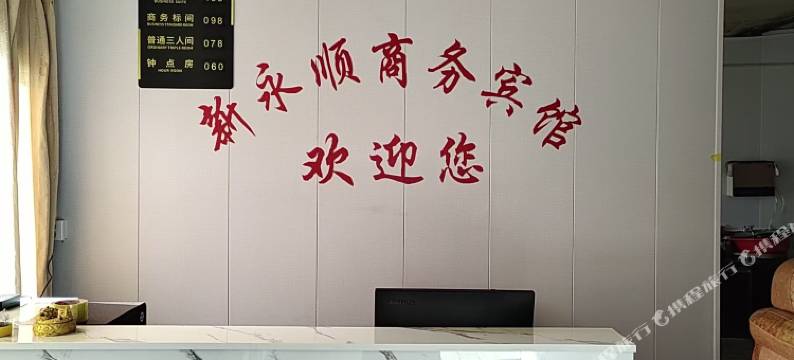 BUSINESS SUITE
商务标间 098
BUSINESS STANDARD ROOM
普通三人间 078
ORDINARY TRIPLE ROOM
钟点房 060
HOUR ROOM
新永顺商务宾馆
欢迎您
携程旅行
携程旅行